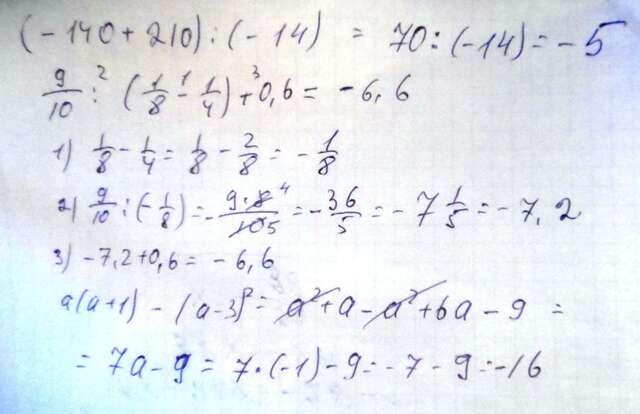 (-140+210):(-14) = 70:(-14)=-5
9/10 :² (1/8 -¹ 1/4) +³ 0,6 = -6,6
1) 1/8 - 1/4 = 1/8 - 2/8 = -1/8
2) 9/10 : (-1/8) = - 9·8 4/10 5 = -36/5 = -7 1/5 = -7,2
3) -7,2+0,6 = -6,6
a(a+1) - (a-3)² = a²+a-a²+6a-9 =
= 7a-9 = 7·(-1)-9=-7-9=-16